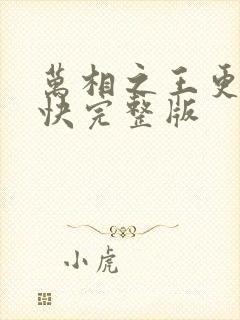 萬相之王更
快完整版
小虎